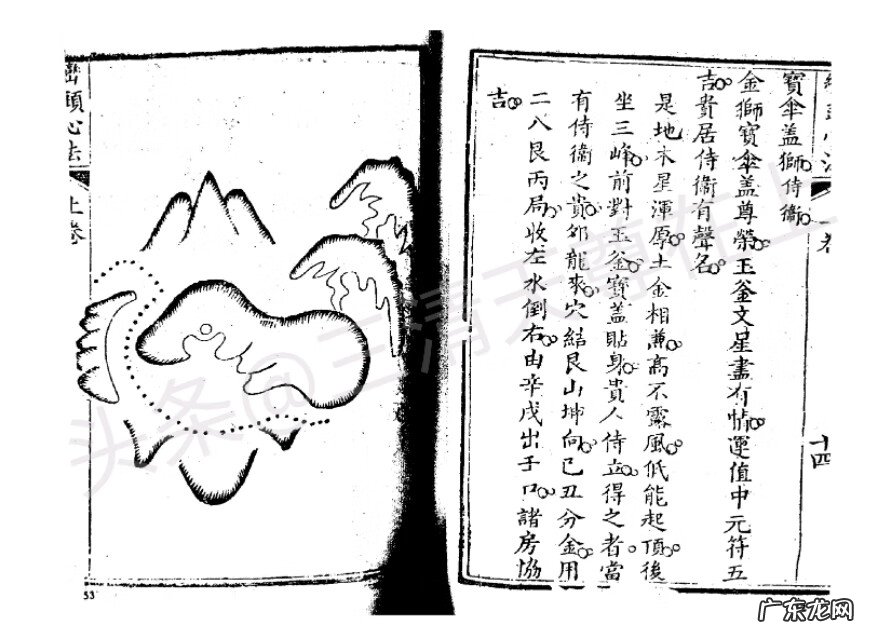 十四
寶傘盖獅侍衞
金獅寶傘盖尊榮玉釡文星盡有情運值中元符五
吉貴居侍衞有聲名
是地木星渾厚土金相兼高不露風低能起頂後
坐三峰前對玉釡寶蓋貼身貴人侍立得之者當
有侍衞之貴卯龍來穴結艮山坤向己丑分金用
二八艮丙局收左水倒右由辛戌出于口諸房協
吉
巒頭心法 上卷
53
头条@三清天尊在上
广东龙网